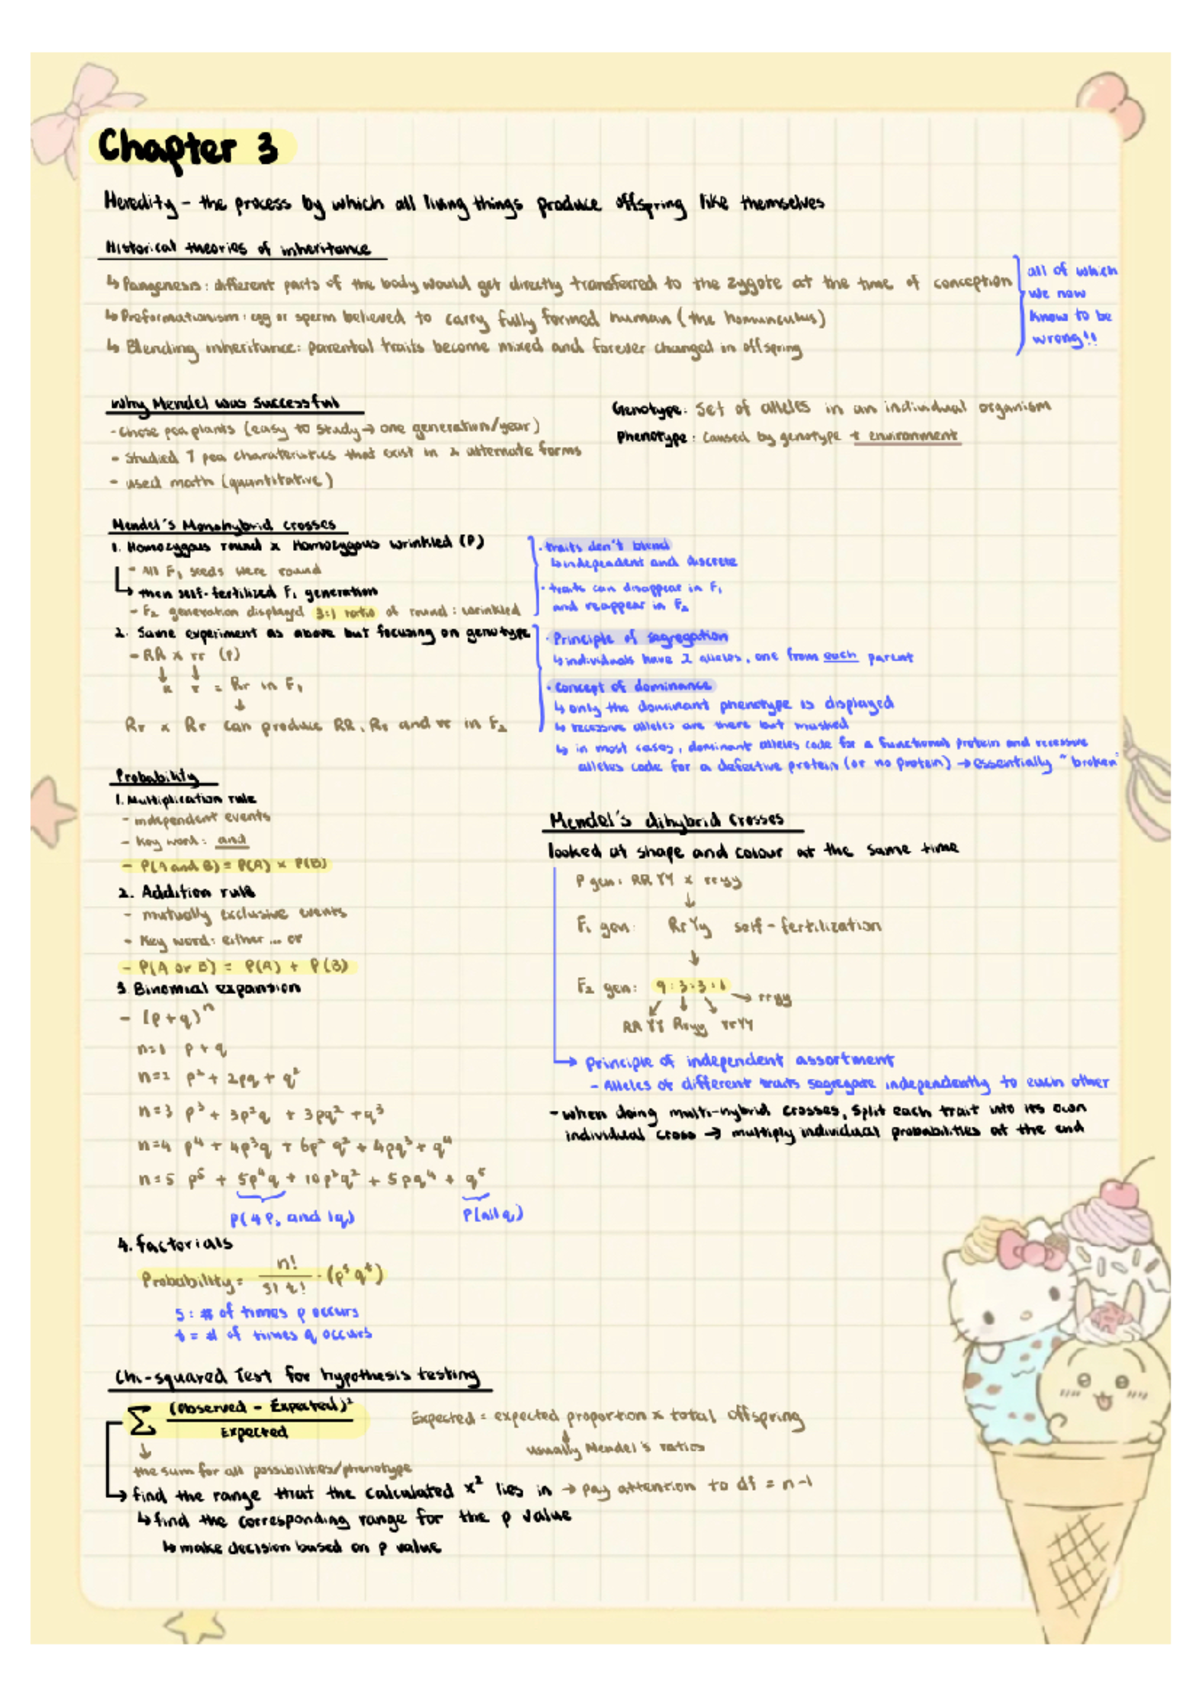 Chapter 3
Heredity - the process by which all living things produce offspring like themselves
Historical theories of inheritance
↳ Pangenesis: different parts of the body would get directly transferred to the zygote at the time of conception
↳ Preformationism: egg or sperm believed to carry fully formed human (the homunculus)
↳ Blending inheritance: parental traits become mixed and forever changed in offspring
all of which
we now
know to be
wrong!!
Why Mendel was successful
- chose pea plants (easy to study → one generation/year)
- studied 7 pea charateristics that exist in 2 alternate forms
- used math (quantitative)
Genotype: set of alleles in an individual organism
Phenotype: caused by genotype + environment
Mendel's Monohybrid crosses
1. Homozygous round x Homozygous wrinkled (P)
- All F₁ seeds were round
↳ then self-fertilized F₁ generation
- F₂ generation displayed 3:1 ratio of round: wrinkled
· traits don't blend
↳ independent and discrete
· traits can disappear in F₁
and reappear in F₂
2. Same experiment as above but focusing on genotype
- RR x rr (P)
↓ ↓
R r = Rr in F₁
↓
Rr x Rr can produce RR, Rr and rr in F₂
· Principle of segregation
↳ individuals have 2 alleles, one from each parent
· Concept of dominance
↳ only the dominant phenotype is displayed
↳ recessive alleles are there but masked
↳ in most cases, dominant alleles code for a functional protein and recessive
alleles code for a defective protein (or no protein) → essentially "broken"
Probability
1. Multiplication rule
- independent events
- Key word: and
- P(A and B) = P(A) x P(B)
2. Addition rule
- mutually exclusive events
- Key word: either ... or
- P(A or B) = P(A) + P(B)
3. Binomial expansion
- (p+q)ⁿ
n=1 p + q
n=2 p² + 2pq + q²
n=3 p³ + 3p²q + 3pq² + q³
n=4 p⁴ + 4p³q + 6p² q² + 4pq³ + q⁴
n=5 p⁵ + 5p⁴q + 10p³q² + 5pq⁴ + q⁵
P(4 P, and 1q) P(all q)
4. factorials
Probability = n!/s! t! · (pˢ qᵗ)
s: # of times p occurs
t = # of times q occurs
Mendel's dihybrid crosses
looked at shape and colour at the same time
P gen: RR YY x rr yy
↓
F₁ gen: Rr Yy self-fertilization
↓
F₂ gen: 9:3:3:1 → rryy
RR YY Rryy rrYY
→ principle of independent assortment
- Alleles of different traits segregate independently to each other
- when doing multi-hybrid crosses, split each trait into its own
individual cross → multiply individual probabilities at the end
Chi-squared Test for hypothesis testing
∑ (Observed - Expected)²/Expected
Expected = expected proportion x total offspring
usually Mendel's ratios
↓
the sum for all possibilities/phenotype
→ find the range that the calculated x² lies in → pay attention to df = n-1
↳ find the corresponding range for the p value
↳ make decision based on p value